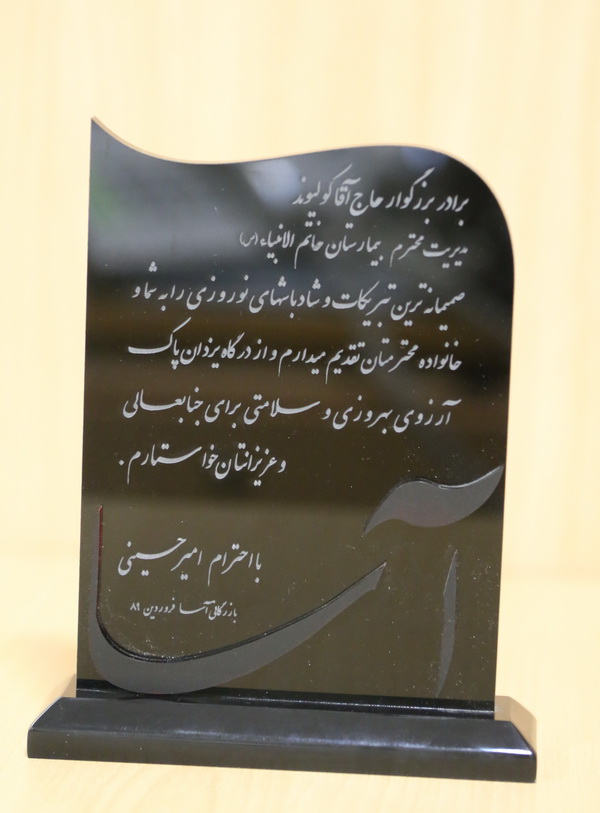 برادر بزرگوار حاج آقا کولیوند
مدیریت محترم بیمارستان خاتم الانبیاء (ص)
صمیمانه ترین تبریکات و شادباشهای نوروزی را به شما و
خانواده محترمتان تقدیم میدارم و از درگاه یزدان پاک
آرزوی بهروزی و سلامتی برای جنابعالی
و عزیزانتان خواستارم .
با احترام امیر حسینی
بازرگانی آسا فروردین ۸۹
آسا